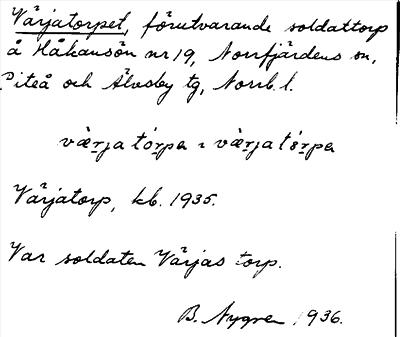 Värjatorpet, förutvarande soldattorp
å Håkansön nr 19, Norrfjärdens sn,
Piteå och Älvsby tg, Norrb. l.
Värjatorp, kb. 1935.
Var soldaten Värjas torp.
B. Nygren 1936.